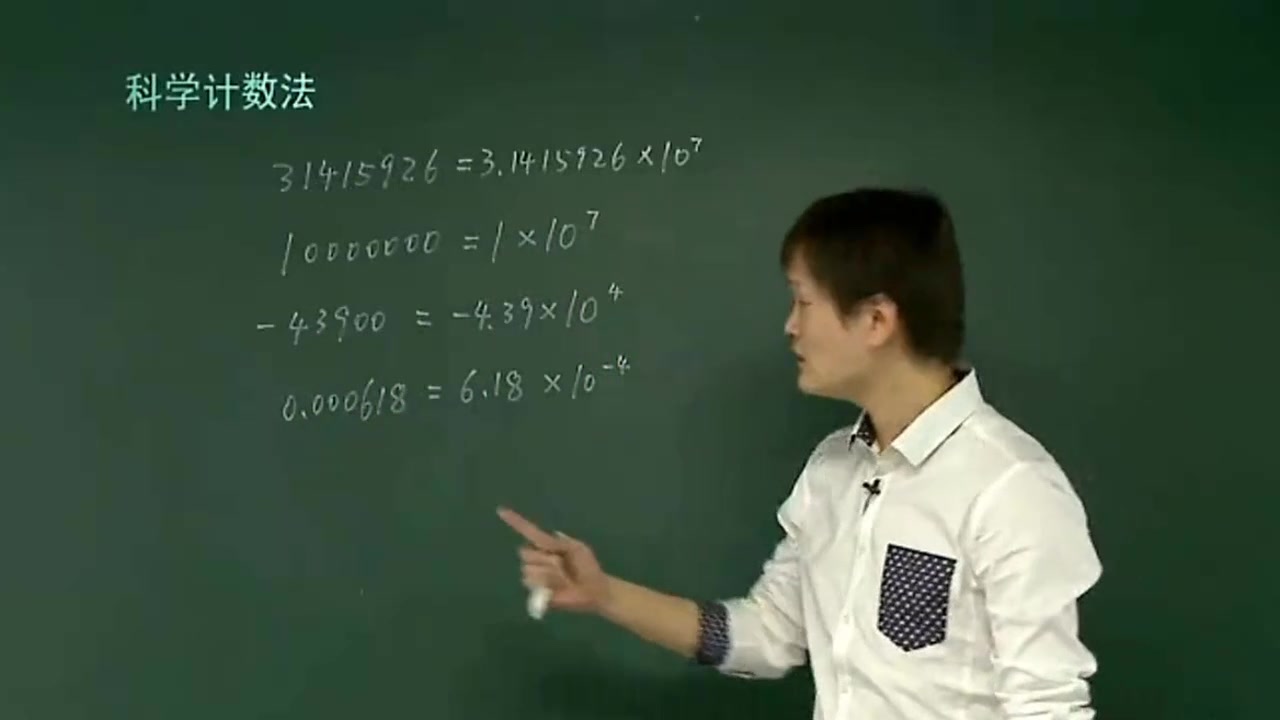 科学计数法
31415926 = 3.1415926 × 10⁷
10000000 = 1 × 10⁷
-43900 = -4.39 × 10⁴
0.000618 = 6.18 × 10⁻⁴